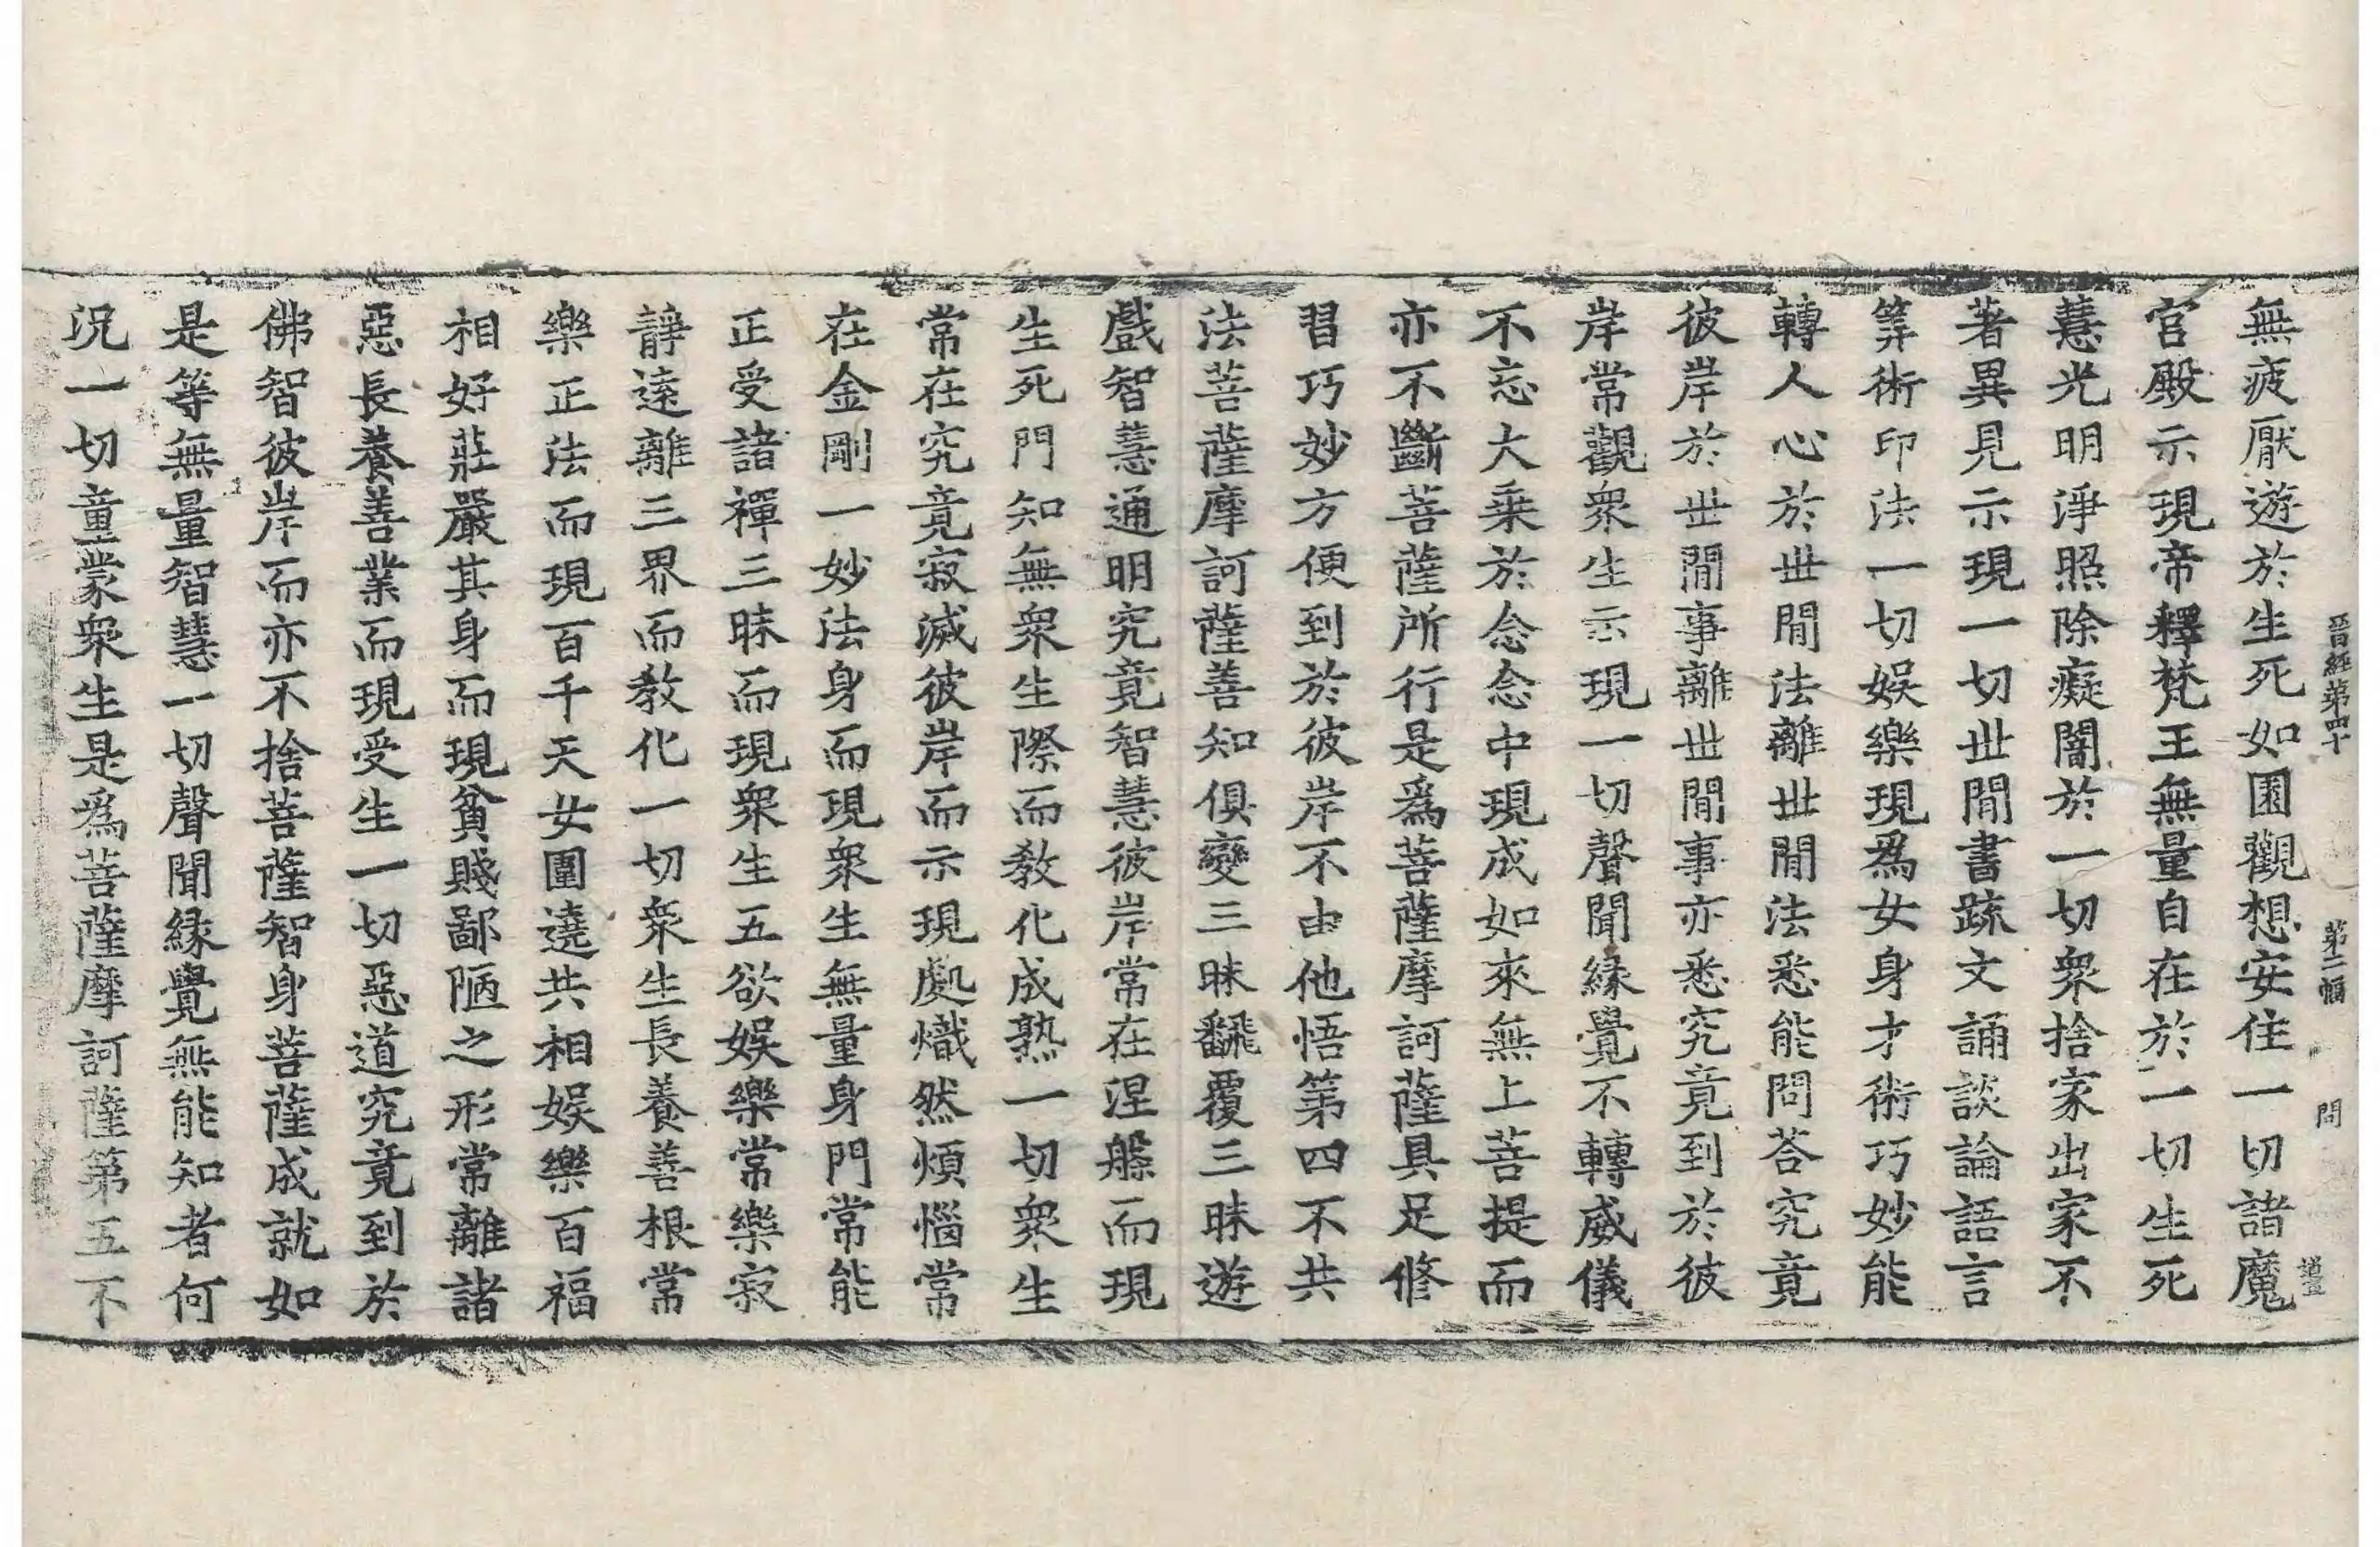 晉經第四十 第二幅 問 道
無疲厭遊於生死如園觀想安住一切諸魔
官殿示現帝釋梵王無量自在於一切生死
慧光明淨照除癡闇於一切衆捨家出家不
著異見示現一切世閒書䟽文誦談論語言
筭術印法一切娛樂現爲女身才術巧妙能
轉人心於世閒法離世閒法悉能問荅究竟
彼岸於世閒事離世閒事亦悉究竟到於彼
岸常觀衆生示現一切聲聞緣覺不轉威儀
不忘大乗於念念中現成如來無上菩提而
亦不斷菩薩所行是爲菩薩摩訶薩具足修
習巧妙方便到於彼岸不由他悟第四不共
法菩薩摩訶薩善知俱變三昧飜覆三昧遊
戲智慧通明究竟智慧彼岸常在涅槃而現
生死門知無衆生際而敎化成熟一切衆生
常在究竟寂滅彼岸而示現處熾然煩惱常
在金剛一妙法身而現衆生無量身門常能
正受諸禪三昧而現衆生五欲娛樂常樂寂
靜遠離三界而敎化一切衆生長養善根常
樂正法而現百千天女圍遶共相娛樂百福
相好莊嚴其身而現貧賤鄙陋之形常離諸
惡長養善業而現受生一切惡道究竟到於
佛智彼岸而亦不捨菩薩智身菩薩成就如
是等無量智慧一切聲聞緣覺無能知者何
況一切童蒙衆生是爲菩薩摩訶薩第五不